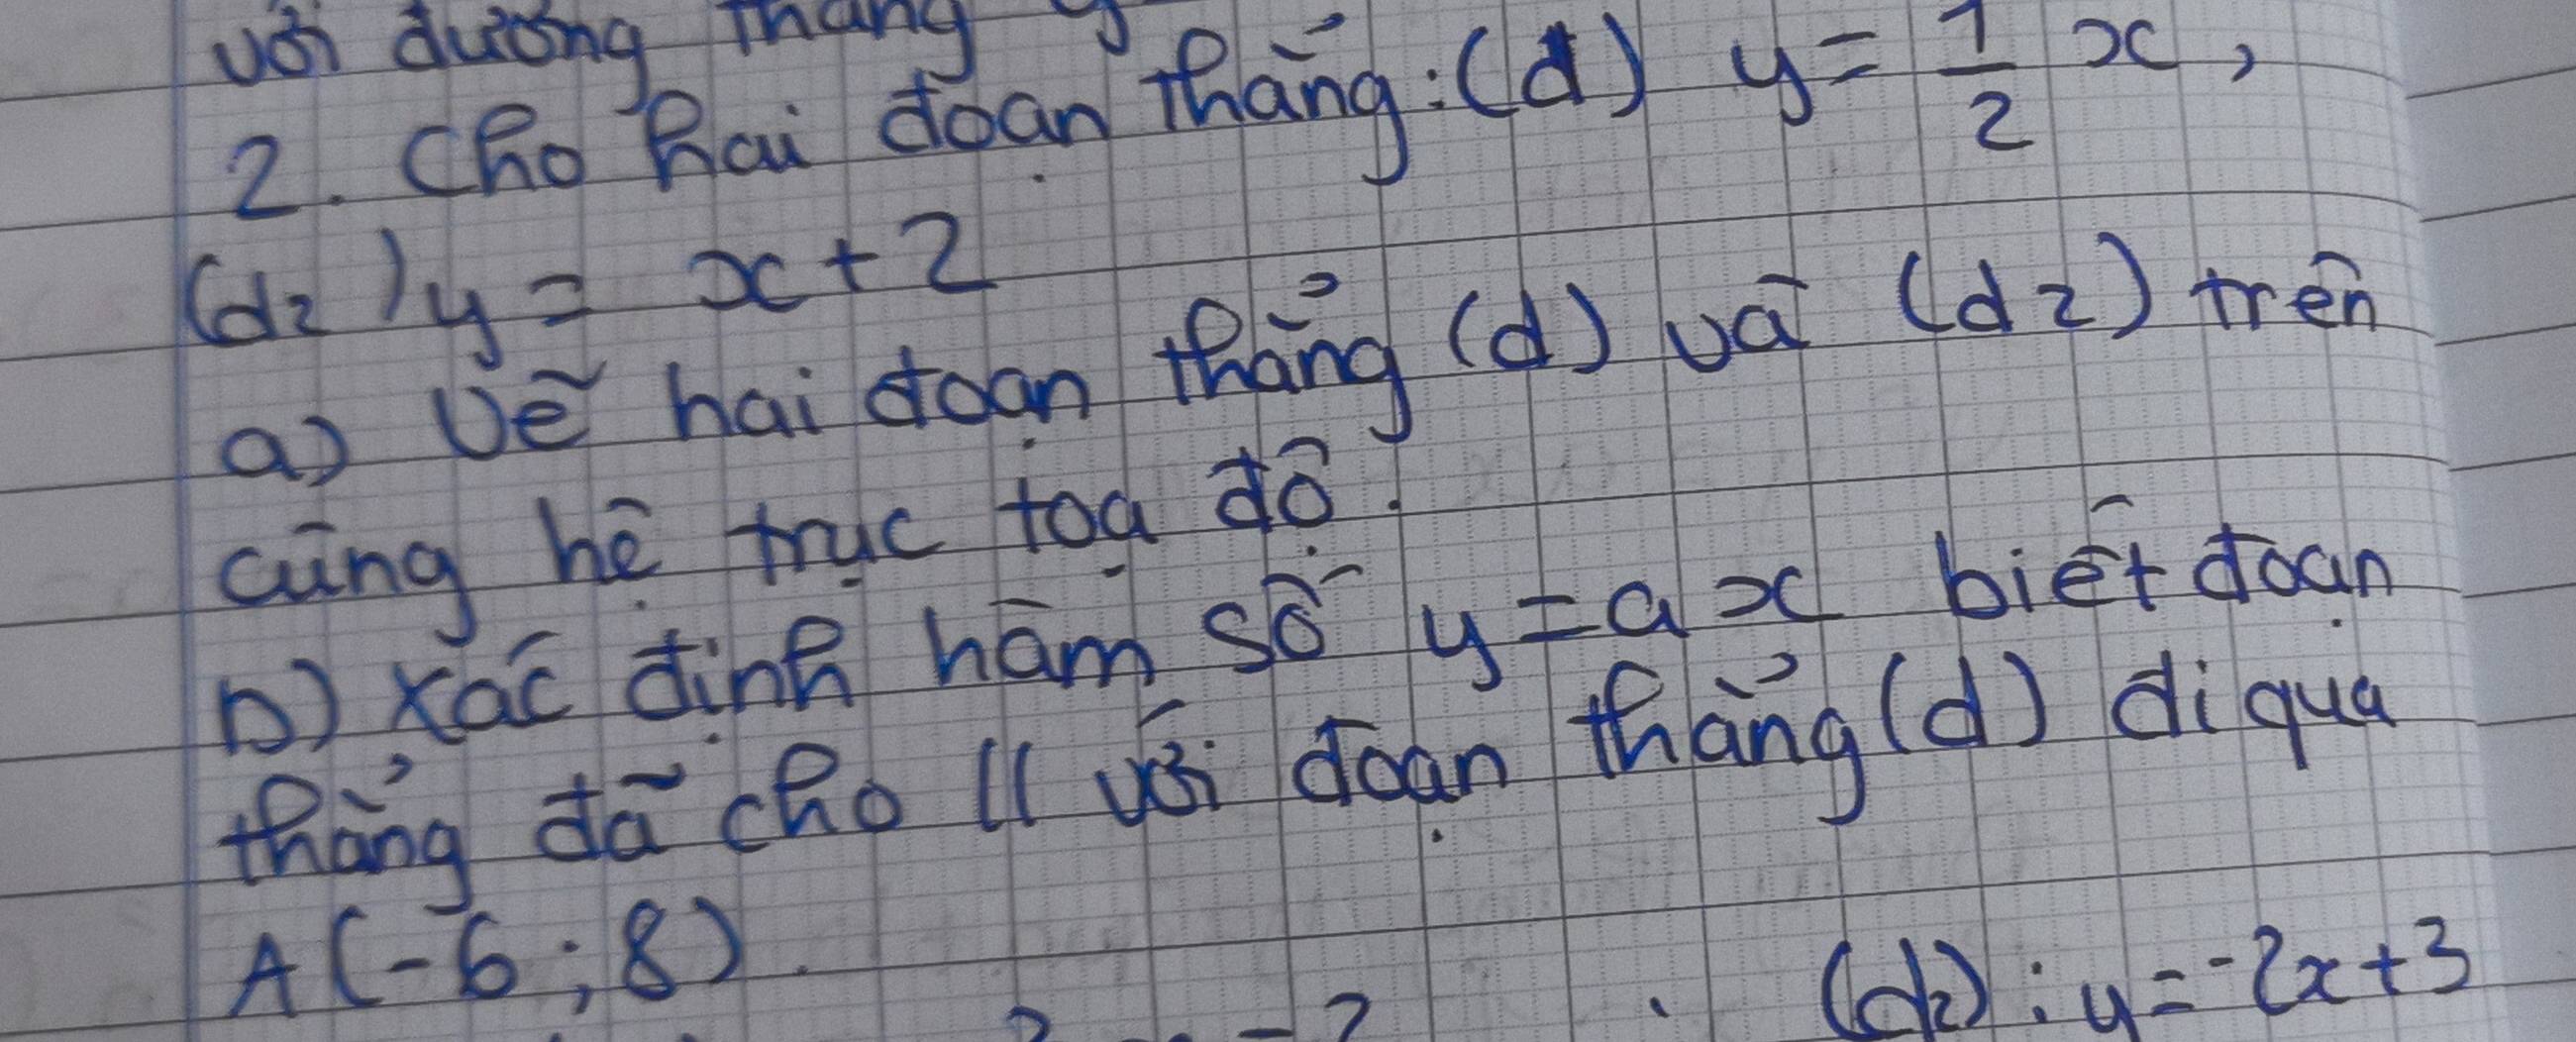 với đường thẳng y
2. Cho hai đoạn thẳng: (d) y = 1/2 x,
(d2) y = x + 2
a) Vẽ hai đoạn thẳng (d) và (d2) trên
cùng hệ trục tọa độ.
b) Xác định hàm số y = ax biết đoạn
thẳng đã cho // với đoạn thẳng (d) đi qua
A(-6; 8).
(d2): y = -2x + 3